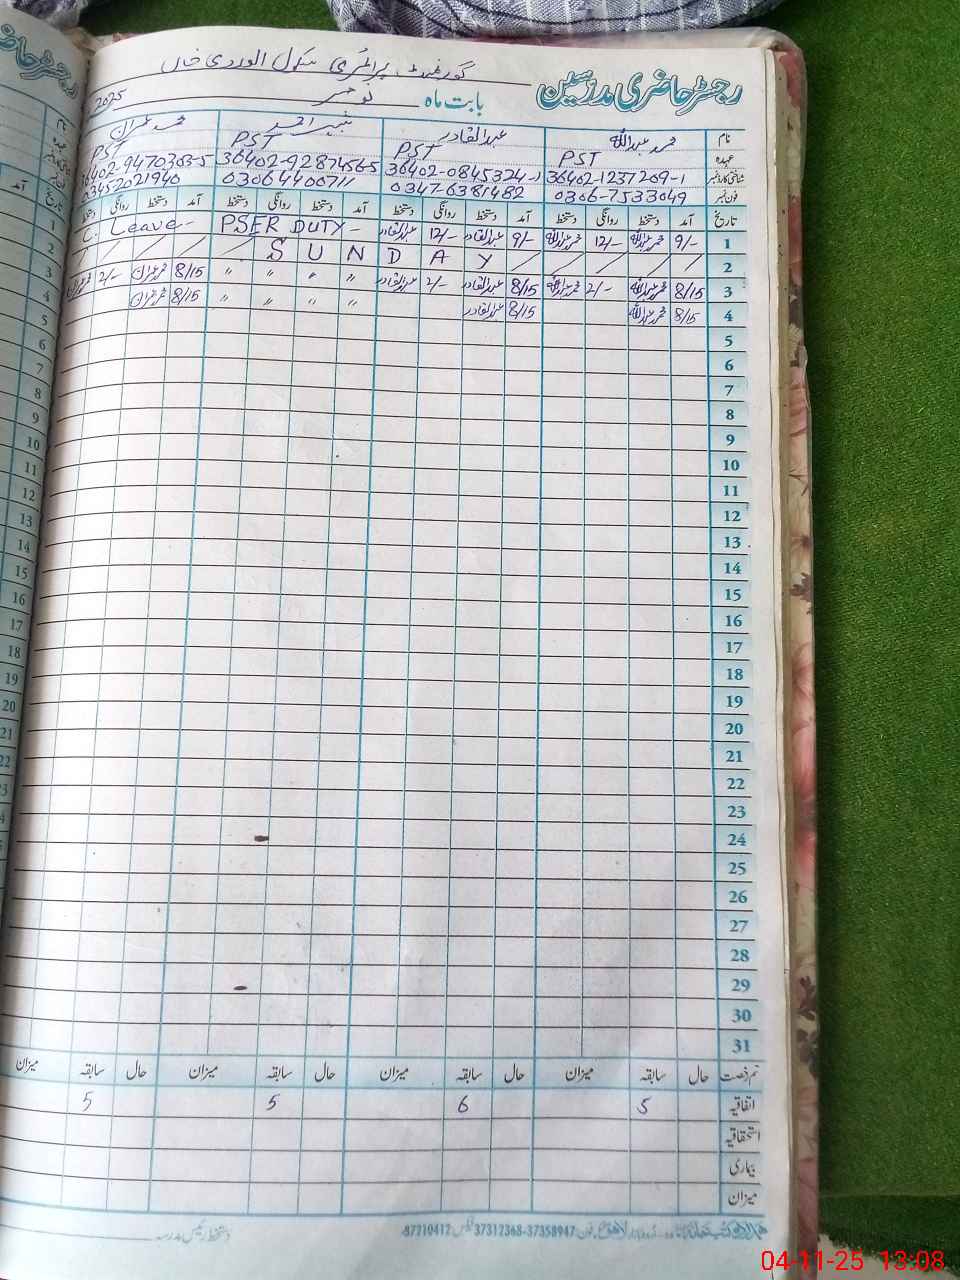 رجسٹر حاضری مدرسین
گورنمنٹ پرائمری سکول الوردی خاں
بابت ماہ نومبر 2025
نام محمد عبداللہ عبدالقادر محمد عمران
عہدہ PST PST PST PST
شناختی کارڈ نمبر 36402-1237209-1 36402-0845324-1 36402-9287456-5 36402-9470303-5
فون نمبر 0306-7533049 0347-6381482 03064400711 03452021940
تاریخ آمد دستخط روانگی دستخط آمد دستخط روانگی دستخط آمد دستخط روانگی دستخط آمد دستخط روانگی دستخط
1 9/- محمد عبداللہ 12/- محمد عبداللہ 9/- عبدالقادر 12/- عبدالقادر PSER DUTY - C. Leave -
2 / / / / S U N D A Y / / / /
3 8/15 محمد عبداللہ 2/- محمد عبداللہ 8/15 عبدالقادر 2/- عبدالقادر " " " " 8/15 محمد عمران 2/- محمد عمران
4 8/15 محمد عبداللہ 8/15 عبدالقادر " " " " 8/15 محمد عمران
5
6
7
8
9
10
11
12
13
14
15
16
17
18
19
20
21
22
23
24
25
26
27
28
29
30
31
حال سابقہ میزان حال سابقہ میزان حال سابقہ میزان حال سابقہ میزان
اتفاقیہ 5 6 5 5
استحقاقیہ
بیماری
میزان
لاہور فون 37358947-37312368 فیکس 37210412 دستخط رئیس مدرسہ
04-11-25 13:08